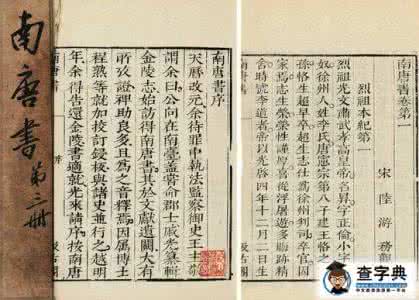 南唐書
第三冊
南唐書序
天曆改元余待罪中執法監察御史王主敬
謂余曰公向在南臺蓋嘗命郡士戚光纂輯
金陵志始訪得南唐書其於文獻遺闕大有
所攷證裨助良多且為之音釋焉因屬博士
程熟等就加校訂鋟板與諸史並行之越明
年余得告還金陵書適就光來請序按南唐
南唐書
序
汲古閣
南唐書卷第一
宋 陸游 務觀
烈祖本紀第一
烈祖光文肅武孝高皇帝名昪字正倫小字
奴徐州人姓李氏唐憲宗第八子建王恪之
孫恪生超早卒超生志仕為徐州判司卒官
家焉志生榮榮性謹厚喜從浮屠遊多晦跡精
舍時號李道者帝以光啟四年十二月二日生
南唐書
汲古閣
查字典